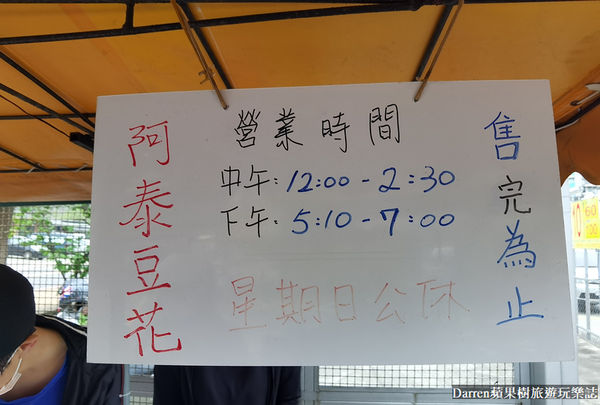 阿泰豆花
營業時間
中午：12:00-2:30
下午：5:10-7:00
星期日公休
售完為止
Darren蘋果樹旅遊玩樂誌